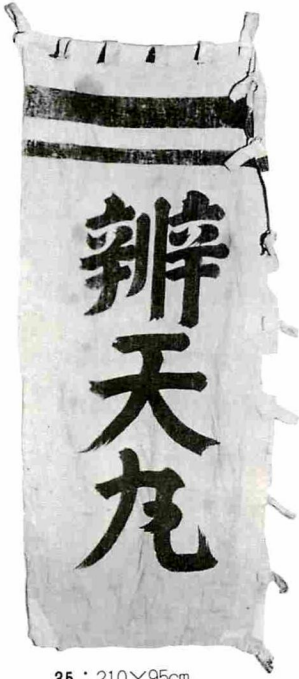 辨天丸
35：210×95cm